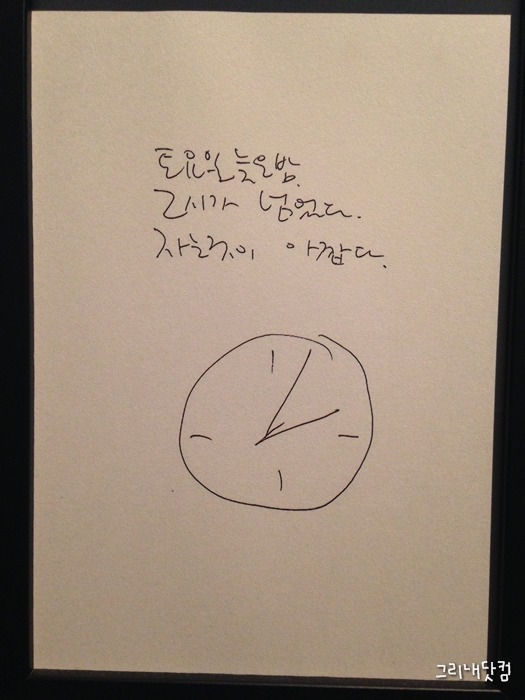 토요일 늦은 밤.
2시가 넘었다.
자는것이 아깝다.
그리내닷컴